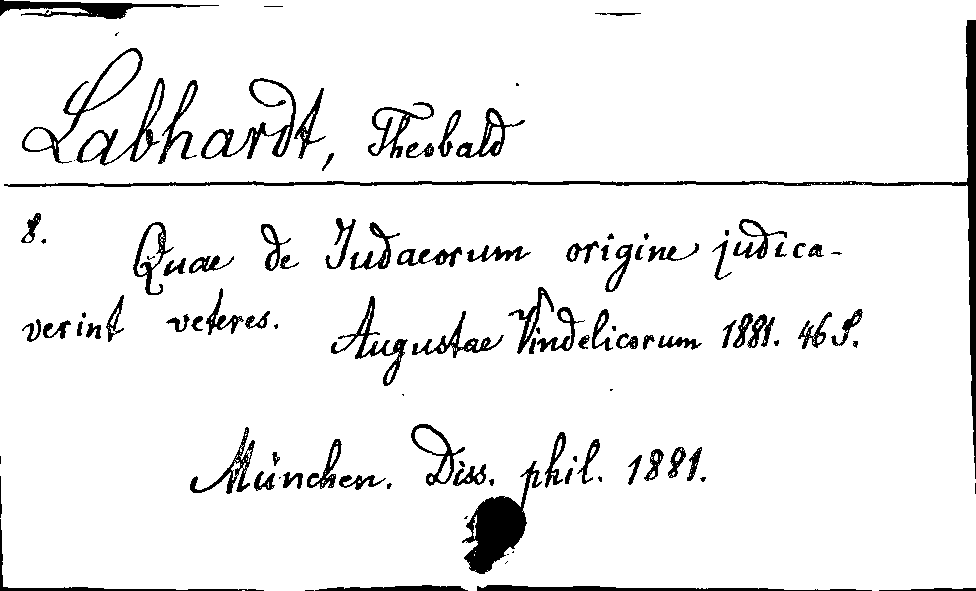 Labhardt, Theobald
8.
Quae de Judaeorum origine judica-
verint veteres.
Augustae Vindelicorum 1881. 46 S.
München. Diss. phil. 1881.